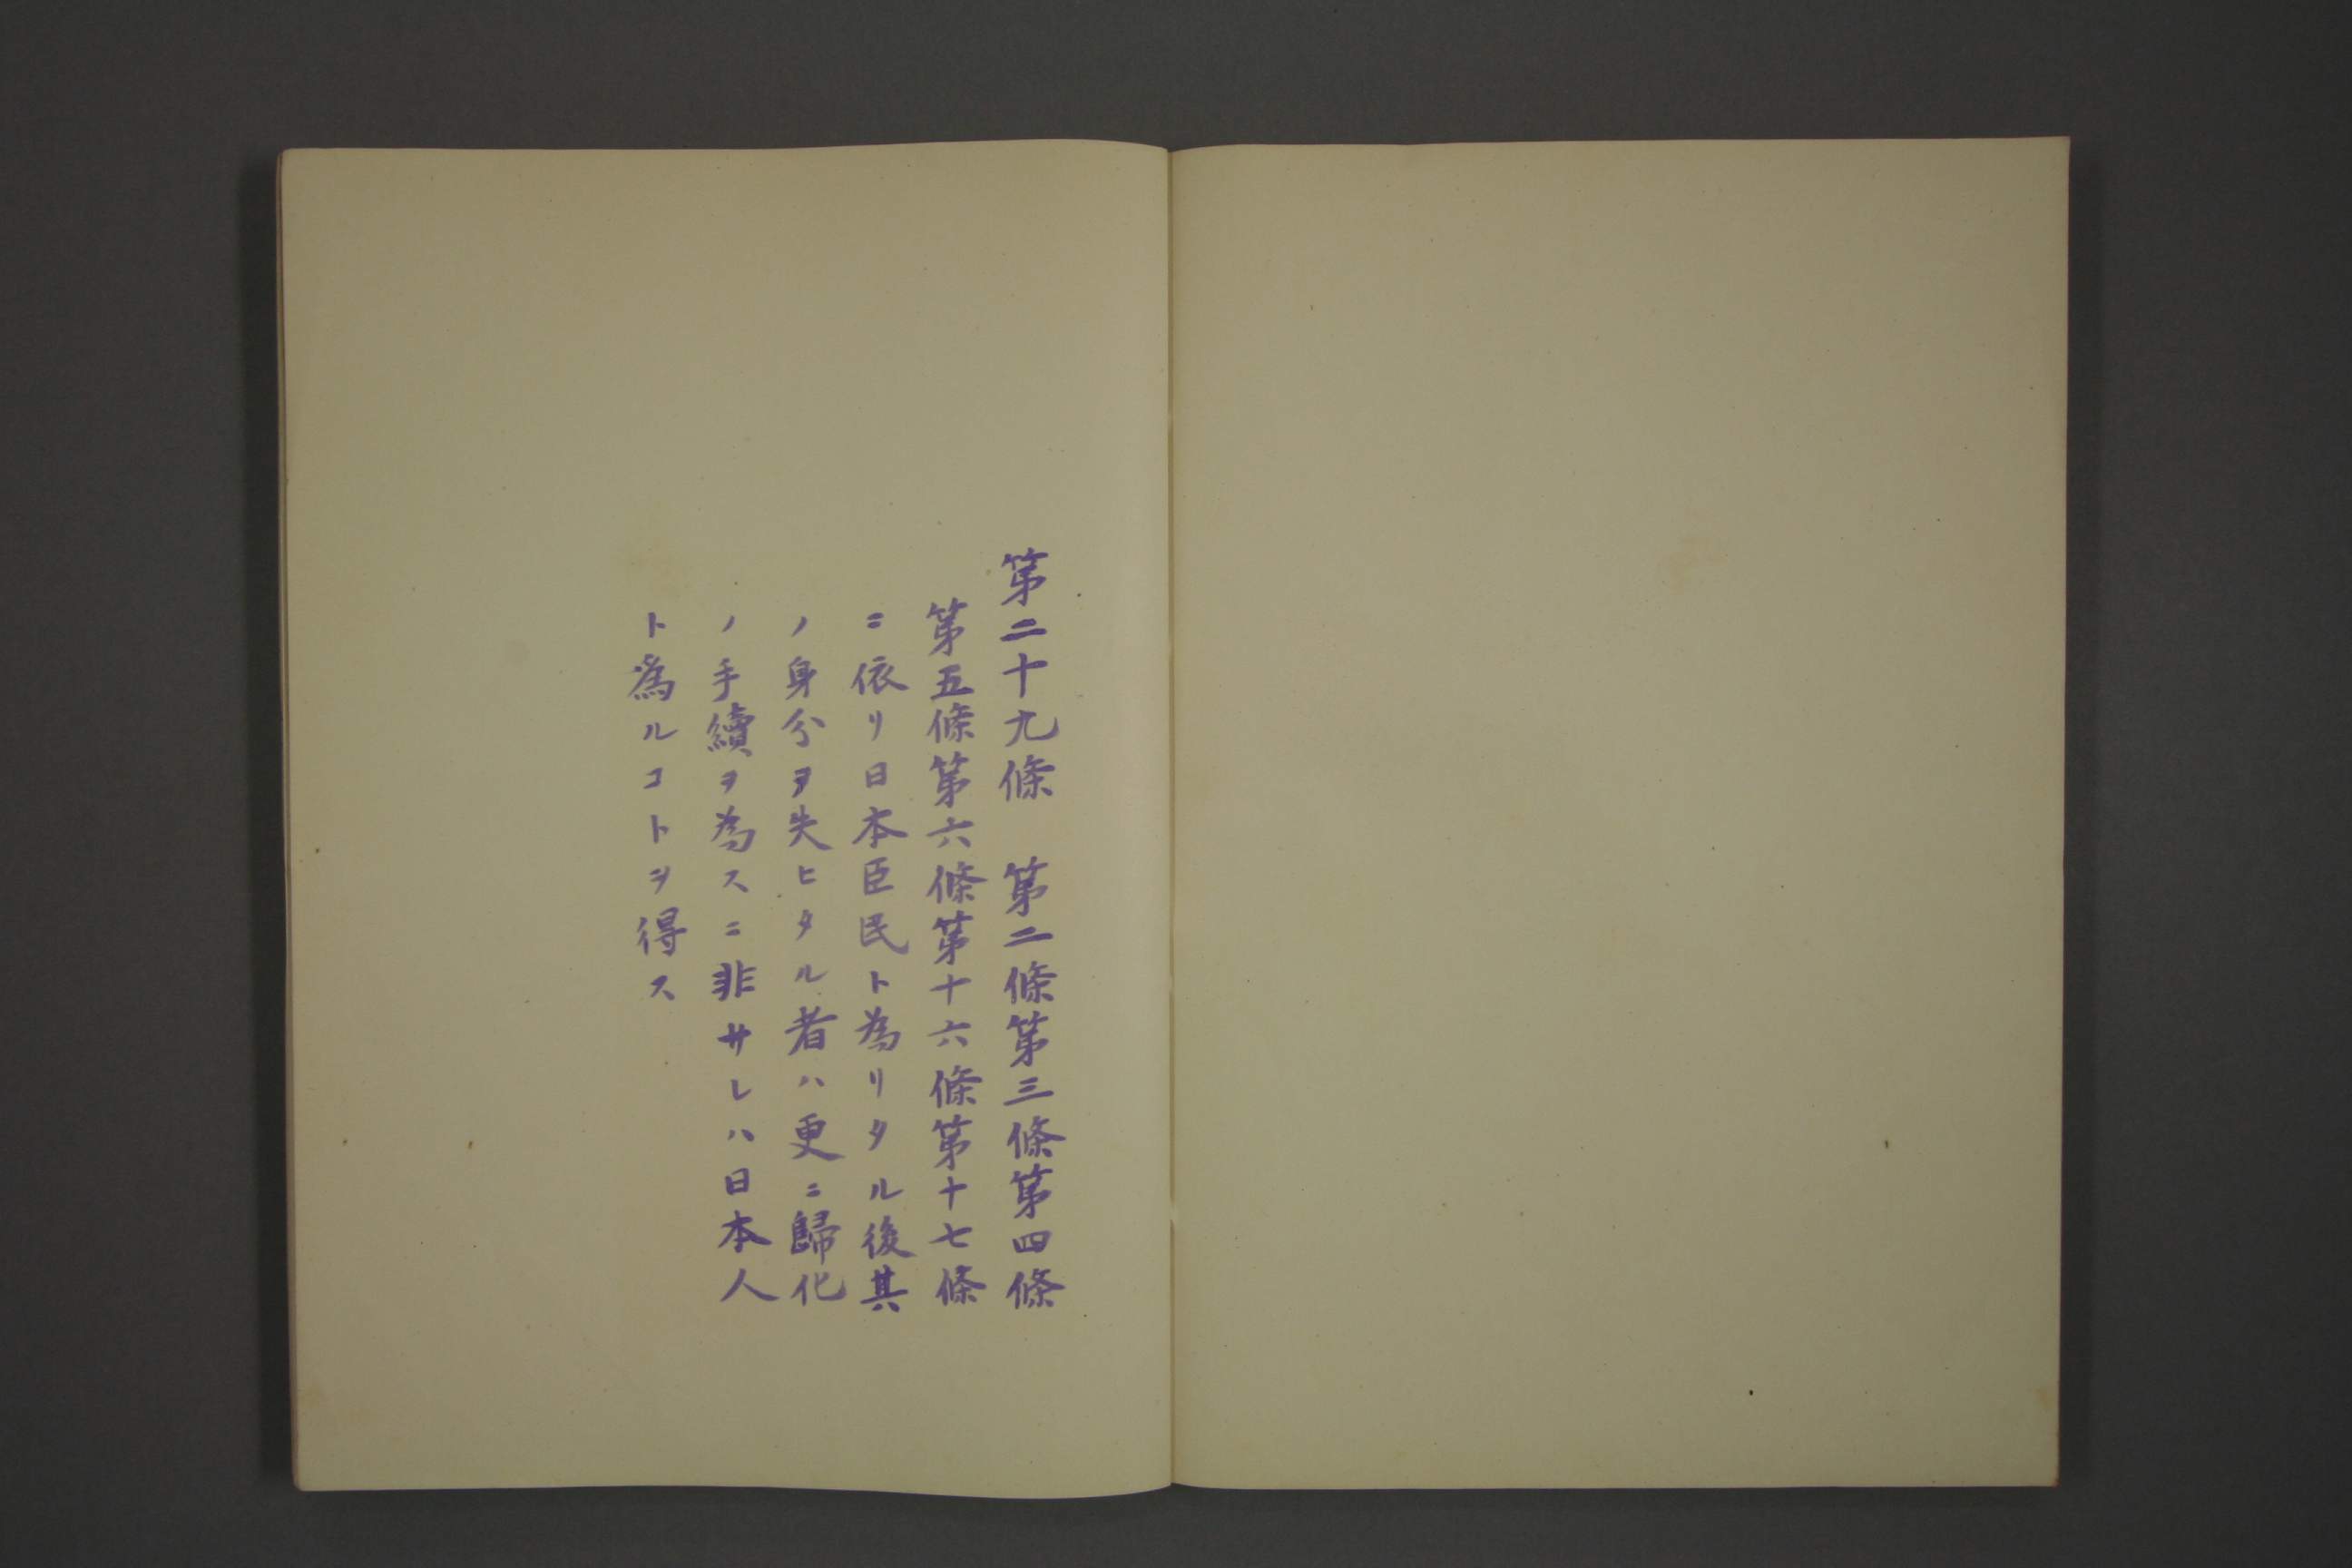 第二十九條　第二條第三條第四條
第五條第六條第十六條第十七條
ニ依リ日本臣民ト為リタル後其
ノ身分ヲ失ヒタル者ハ更ニ歸化
ノ手續ヲ為スニ非サレハ日本人
ト爲ルコトヲ得ス